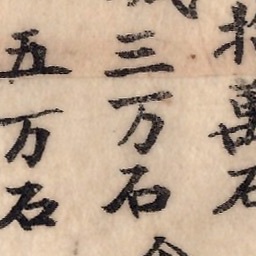 拾萬石
三万石
五万石